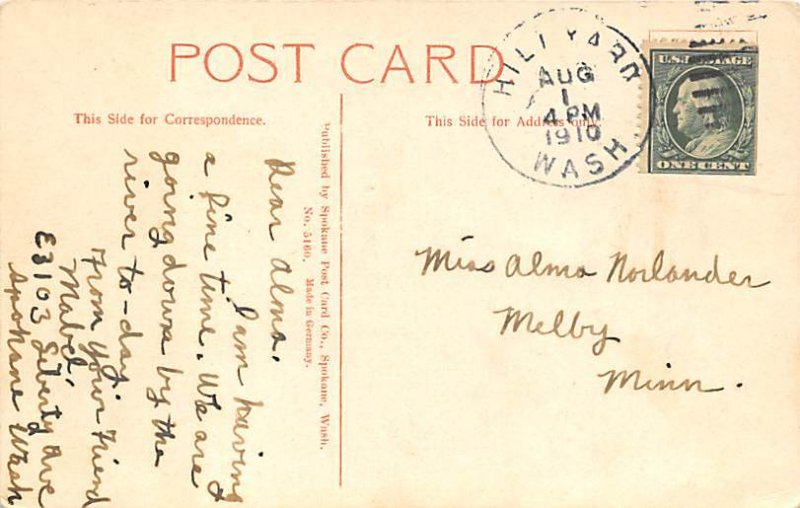 POST CARD
This Side for Correspondence.
This Side for Address only.
HILLYARD
AUG
1
4 PM
1910
WASH
U.S. POSTAGE
ONE CENT
Published by Spokane Post Card Co., Spokane, Wash.
No. 5160. Made in Germany.
Dear Alma.
I am having
a fine time. We are
going down by the
river to-day.
From your Friend
Mabel,
E3103 Liberty Ave
Spokane Wash
Miss Alma Norlander
Melby
Minn.